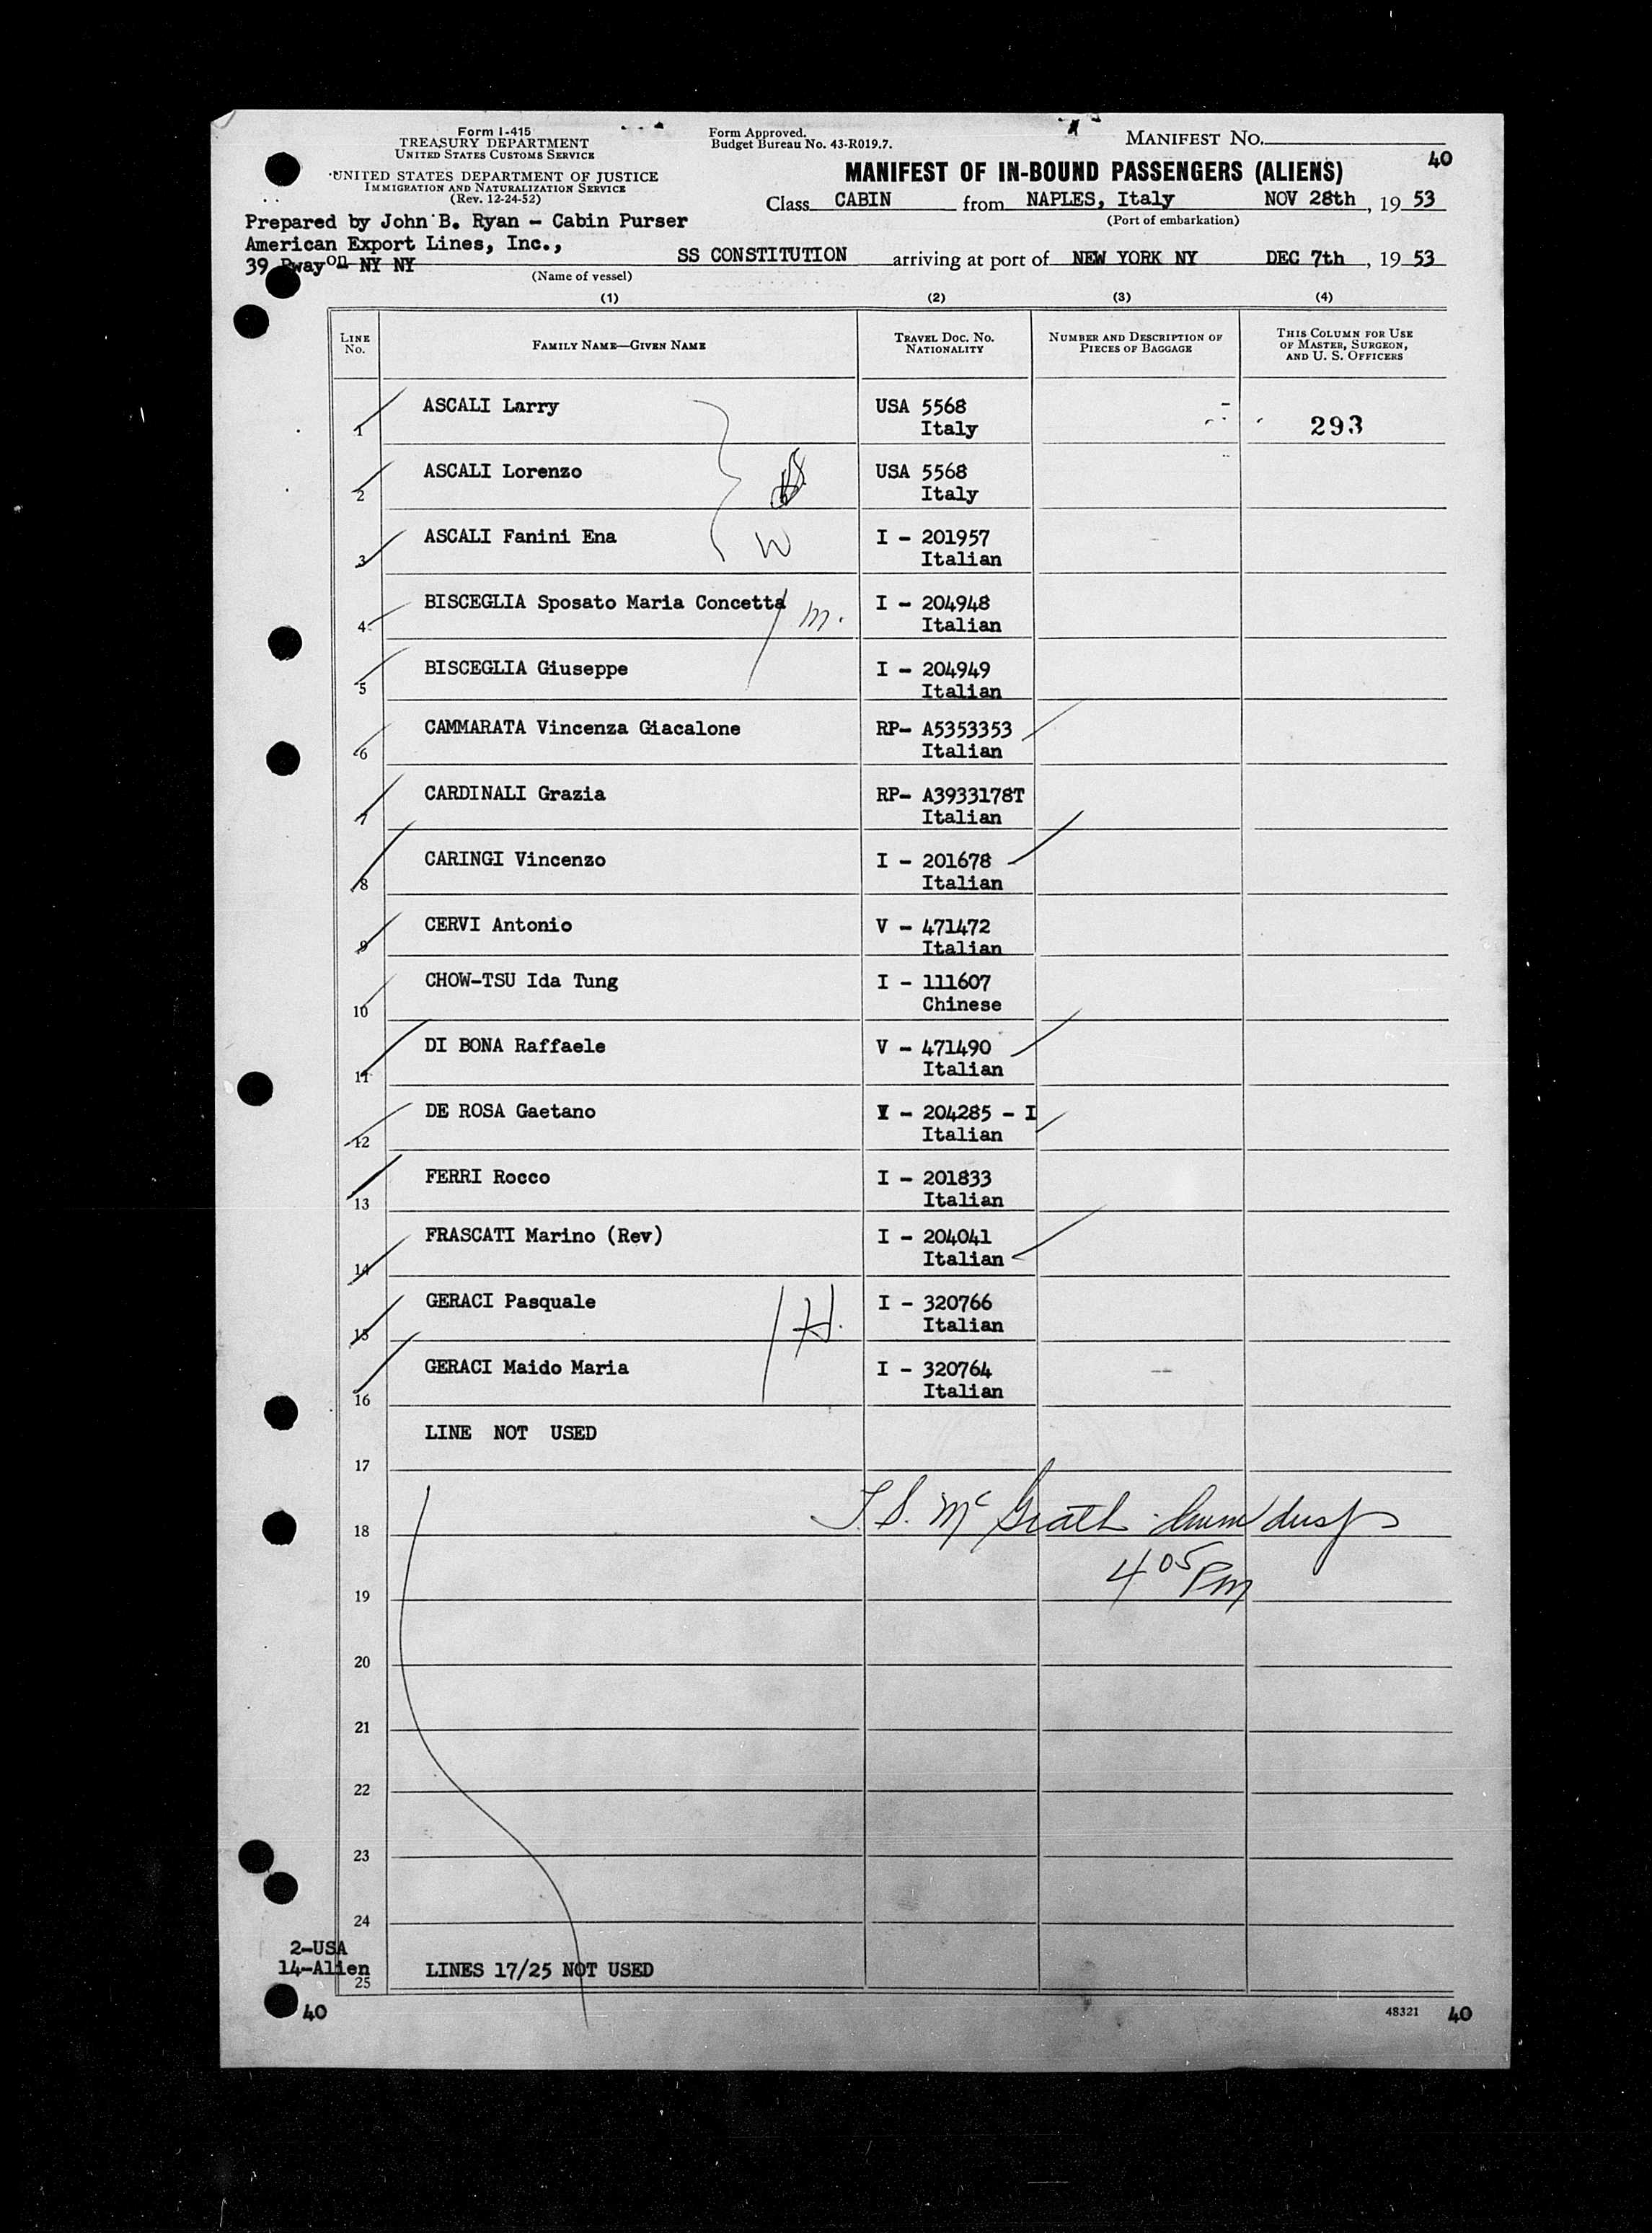 Form I-415
TREASURY DEPARTMENT
UNITED STATES CUSTOMS SERVICE
UNITED STATES DEPARTMENT OF JUSTICE
IMMIGRATION AND NATURALIZATION SERVICE
(Rev. 12-24-52)
Form Approved.
Budget Bureau No. 43-R019.7.
MANIFEST No.
40
MANIFEST OF IN-BOUND PASSENGERS (ALIENS)
Class CABIN from NAPLES, Italy NOV 28th, 19 53
(Port of embarkation)
Prepared by John B. Ryan - Cabin Purser
American Export Lines, Inc.,
39 Bway NY NY
on SS CONSTITUTION arriving at port of NEW YORK NY DEC 7th, 19 53
(Name of vessel)
(1) (2) (3) (4)
LINE No. FAMILY NAME—GIVEN NAME TRAVEL DOC. NO. NATIONALITY NUMBER AND DESCRIPTION OF PIECES OF BAGGAGE THIS COLUMN FOR USE OF MASTER, SURGEON, AND U. S. OFFICERS
1 ASCALI Larry USA 5568 Italy 293
2 ASCALI Lorenzo USA 5568 Italy
3 ASCALI Fanini Ena W I - 201957 Italian
4 BISCEGLIA Sposato Maria Concetta m. I - 204948 Italian
5 BISCEGLIA Giuseppe I - 204949 Italian
6 CAMMARATA Vincenza Giacalone RP- A5353353 Italian
7 CARDINALI Grazia RP- A3933178T Italian
8 CARINGI Vincenzo I - 201678 Italian
9 CERVI Antonio V - 471472 Italian
10 CHOW-TSU Ida Tung I - 111607 Chinese
11 DI BONA Raffaele V - 471490 Italian
12 DE ROSA Gaetano - 204285 - I Italian
13 FERRI Rocco I - 201833 Italian
14 FRASCATI Marino (Rev) I - 204041 Italian
15 GERACI Pasquale H. I - 320766 Italian
16 GERACI Maido Maria I - 320764 Italian
17 LINE NOT USED
18 McGrath
19 4 05 Pm
20
21
22
23
24
25 LINES 17/25 NOT USED
2-USA
14-Alien
40
48321 40